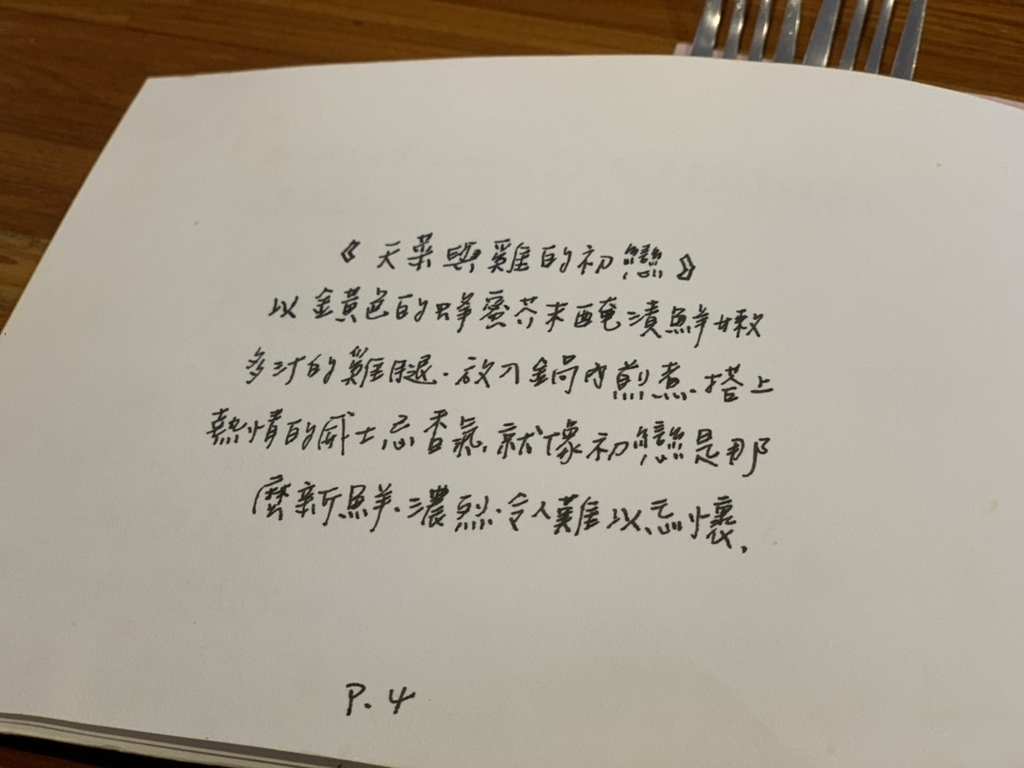 《天菜與雞的初戀》
以金黃色的蜂蜜芥末醃漬鮮嫩
多汁的雞腿.放入鍋內煎煮.搭上
熱情的威士忌香氣.就像初戀是那
麼新鮮.濃烈.令人難以忘懷.
P.4